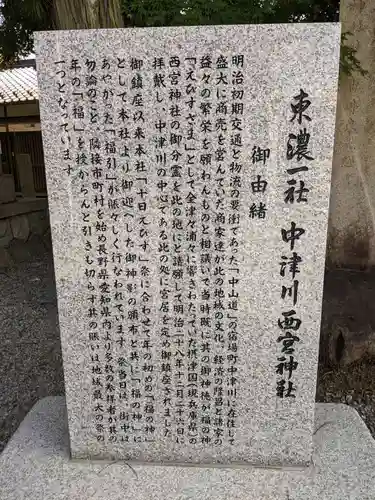 東濃一社 中津川西宮神社
御由緒
明治初期交通と物流の要衝であった「中山道」の宿場町中津川に在住して
盛大に商売を営んでいた商家達が此の地域の文化、経済の隆昌と諸家の
益々の繁栄を願わんものと相議いて当時既に其の御神徳が福の神
「えびすさま」として全国津々浦々に響きわたっていた摂津国(現兵庫県)の
西宮神社の御分霊を此の地にと請願して明治二十八年十二月二十六日に
拝戴し、中津川の中心である此の処に宮居を定め御鎮座されました。
御鎮座以来本社「十日えびす」祭に合わせて年の初めの「福の神」
として本社より御迎へした御神影の頒布と共に「福の神」に
あやかった「福引」が賑々しく行なわれています。祭当日は、街中は
勿論のこと、隣接市町村を始め長野県愛知県内より多数の参拝者が其の
年の「福」を授からんと引きも切らず其の賑いは地域最大の祭の
一つとなっています。